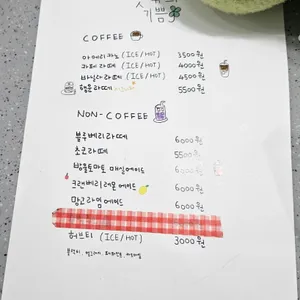 기쁨
COFFEE
아메리카노 (ICE/HOT) 3500원
카페라떼 (ICE/HOT) 4000원
바닐라라떼 (ICE/HOT) 4500원
행운라떼 5500원
NON-COFFEE
블루베리라떼 6000원
초코라떼 5500원
방울토마토 매실에이드 6000원
크랜베리레몬에이드 6000원
망고라임에이드 6000원
허브티 (ICE/HOT) 3000원